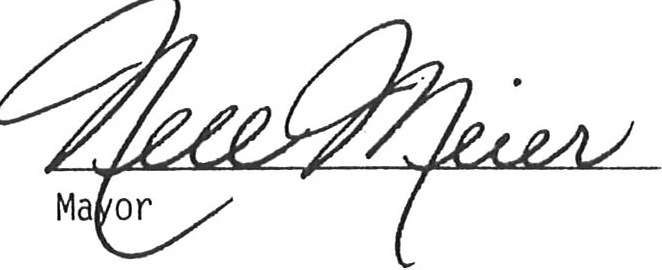 Nell Meier
Mayor